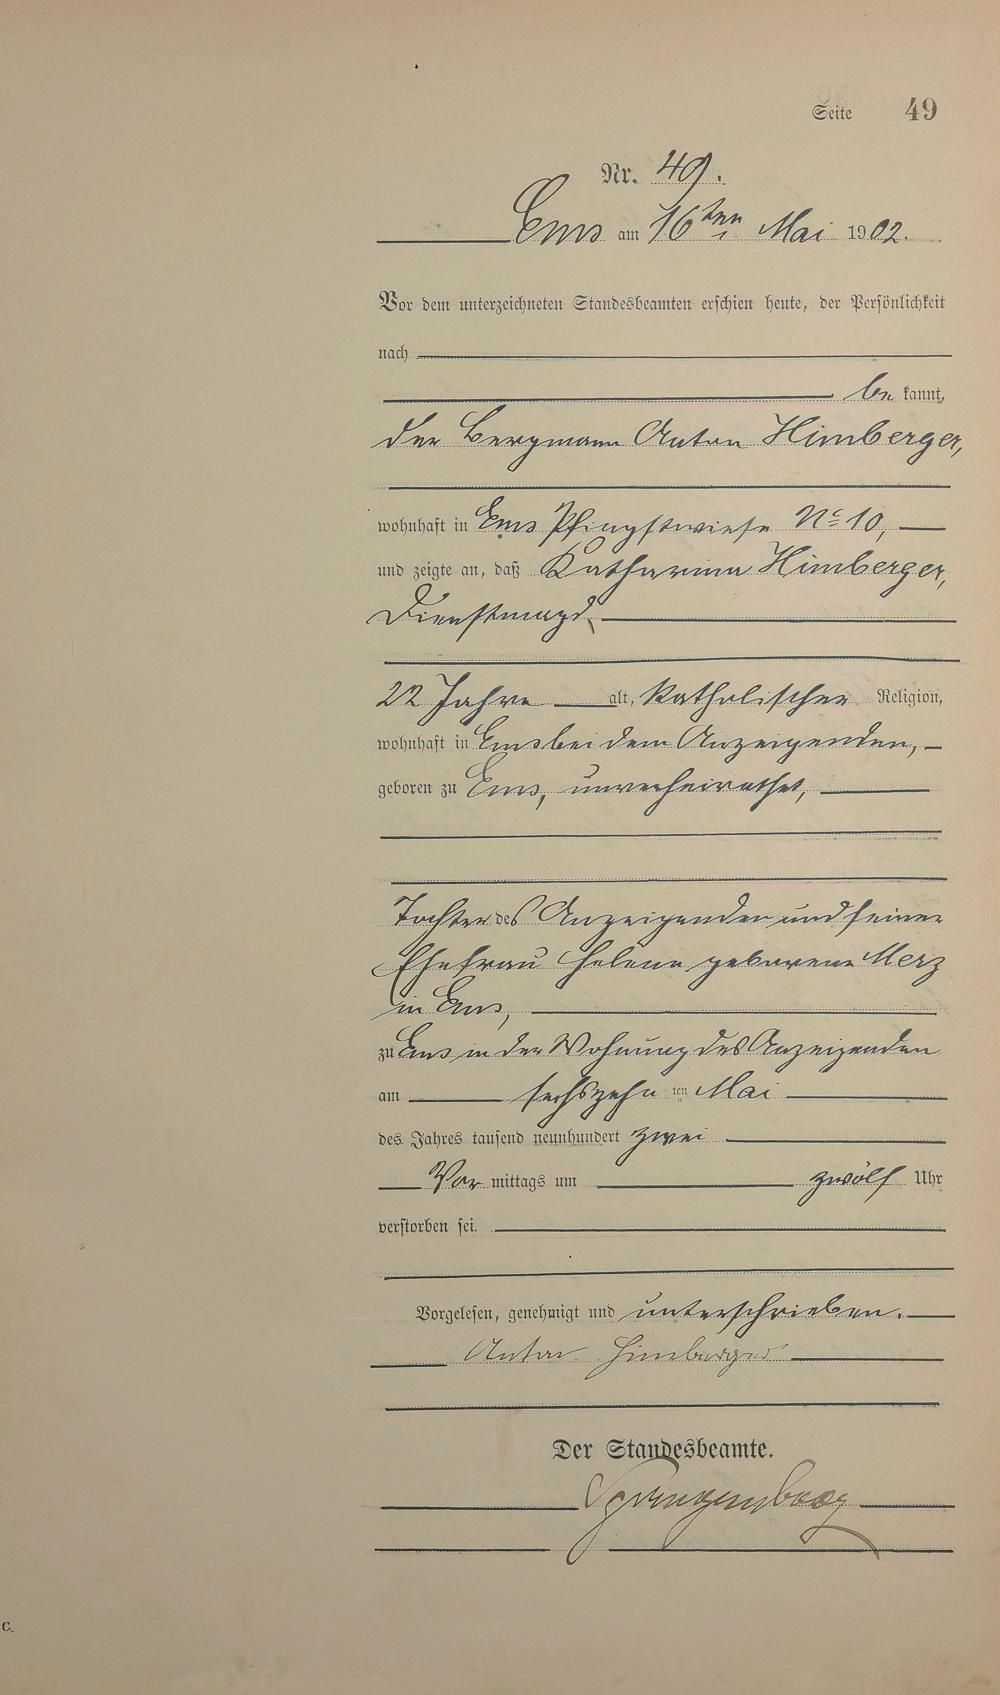 Seite 49
Nr. 49.
Ems am 16ten Mai 1902.
Vor dem unterzeichneten Standesbeamten erschien heute, der Persönlichkeit
nach
be kannt,
der Bergmann Anton Himberger,
wohnhaft in Ems Pfingstwiese No 10,
und zeigte an, daß Katharina Himberger,
Dienstmagd,
22 Jahre alt, katholischer Religion,
wohnhaft in Ems bei dem Anzeigenden,
geboren zu Ems, unverheirathet,
Tochter des Anzeigenden und seiner
Ehefrau Helene geborene Merz
in Ems,
zu Ems in der Wohnung des Anzeigenden
am sechszehn ten Mai
des Jahres tausend neunhundert zwei
Vor mittags um zwölf Uhr
verstorben sei.
Vorgelesen, genehmigt und unterschrieben.
Anton Himberger
Der Standesbeamte.
C.